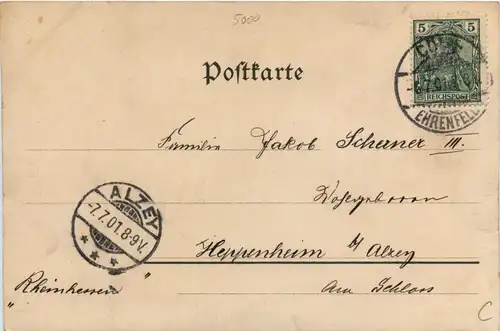 5000
5 5
REICHSPOST
EHRENFELD
Postkarte
Familie Jakob Scherner III.
ALZEY
-7.7.01.8-9V.
Heppenheim b/ Alzey
"Rheinhessen"
Am Schloss
C